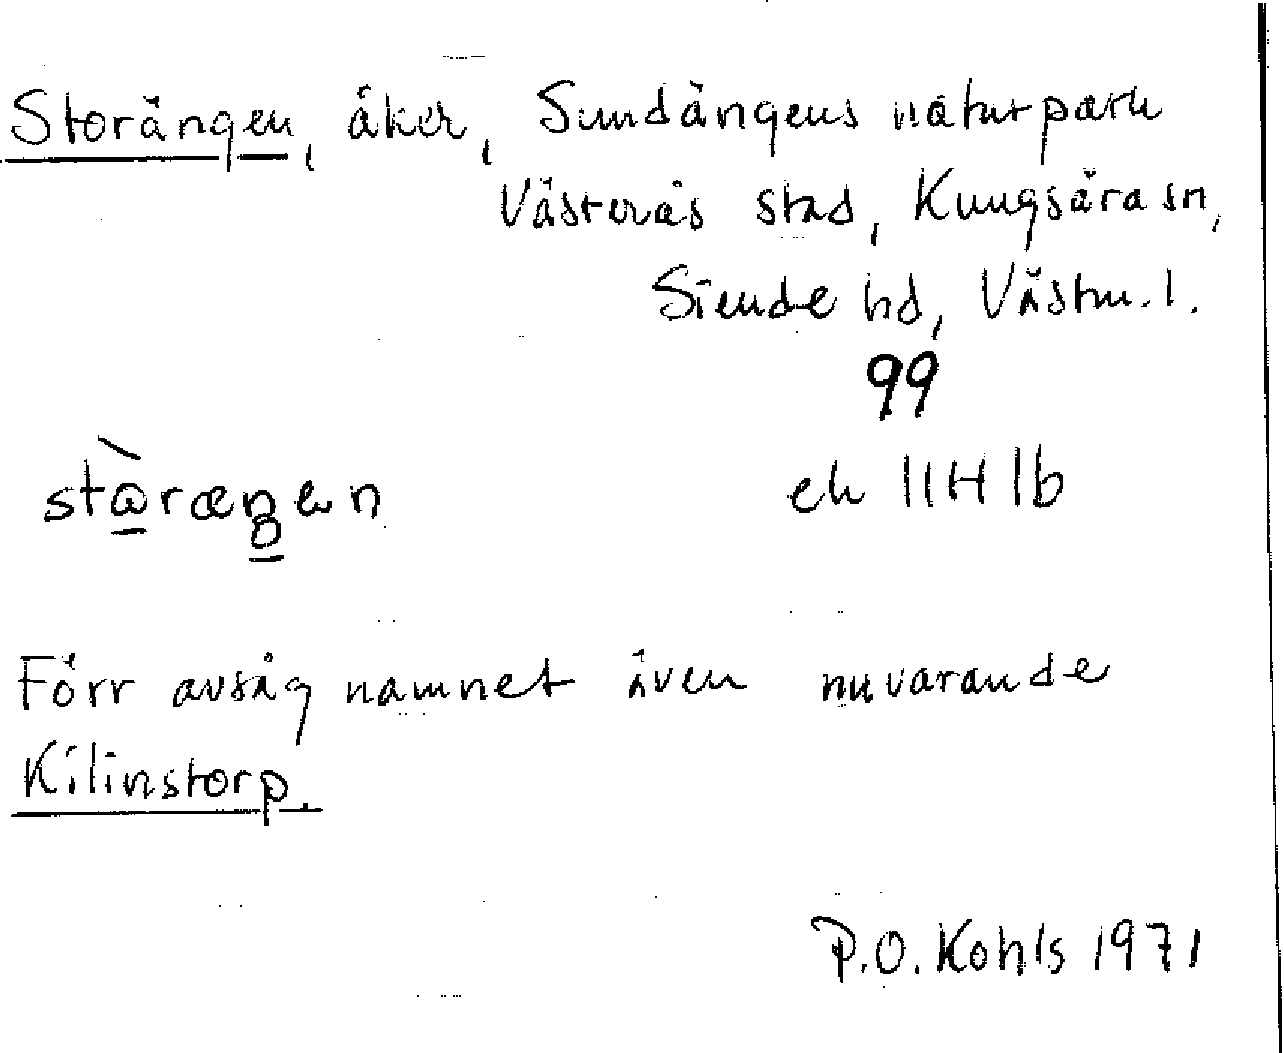 Storängen, åker, Sundängens naturpark
Västerås stad, Kungsåra sn,
Siende hd, Västm. l.
99
stɷ̀ræŋen
ek 11H 1b
Förr avsåg namnet även nuvarande
Kilinstorp.
P.O. Kohls 1971